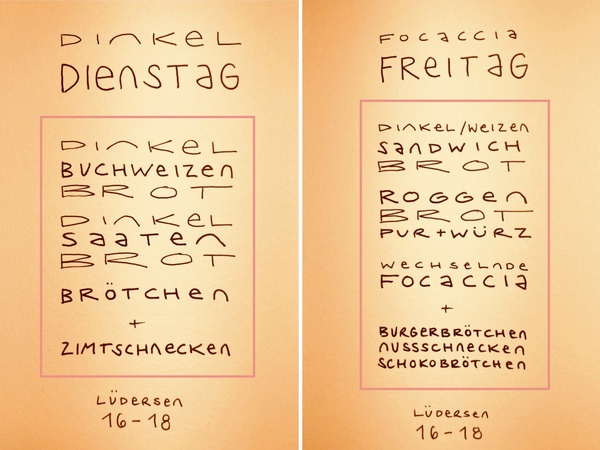 Dinkel
Dienstag
Dinkel
Buchweizen
Brot
Dinkel
Saaten
Brot
Brötchen
+
Zimtschnecken
Lüdersen
16-18
Focaccia
Freitag
Dinkel/Weizen
Sandwich
Brot
Roggen
Brot
Pur+Würz
Wechselnde
Focaccia
+
Burgerbrötchen
Nussschnecken
Schokobrötchen
Lüdersen
16-18